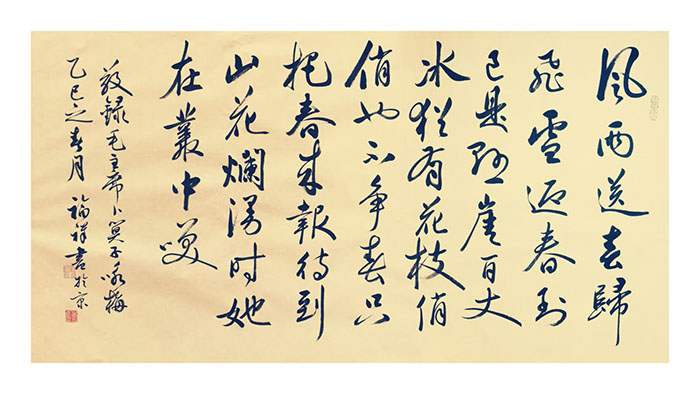 风雨送春歸
飛雪迎春到
已是懸崖百丈
冰猶有花枝俏
俏也不争春只
把春来報待到
山花爛漫时她
在叢中笑
敬録毛主席卜算子咏梅
乙巳之春月 福祥書於京